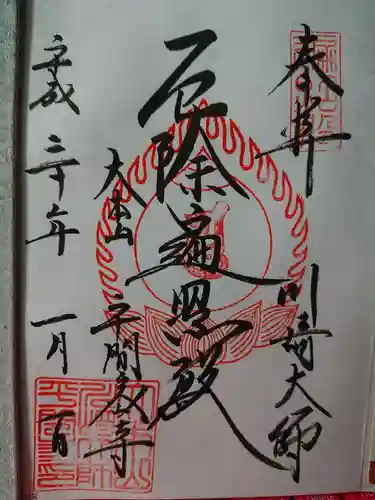 奉拝
川崎大師
厄除遍照殿
大本山
平間教寺
平成三十年一月一日